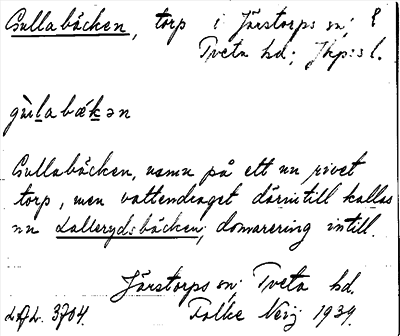 Gullabäcken, torp i Järstorps sn;
Tveta hd; Jkp:s l.
gùlabǽkən
Gullabäcken, namn på ett nu rivet
torp, men vattendraget därintill kallas
nu Lallerydsbäcken; domarering intill.
Järstorps sn; Tveta hd.
3704. Folke 1934.